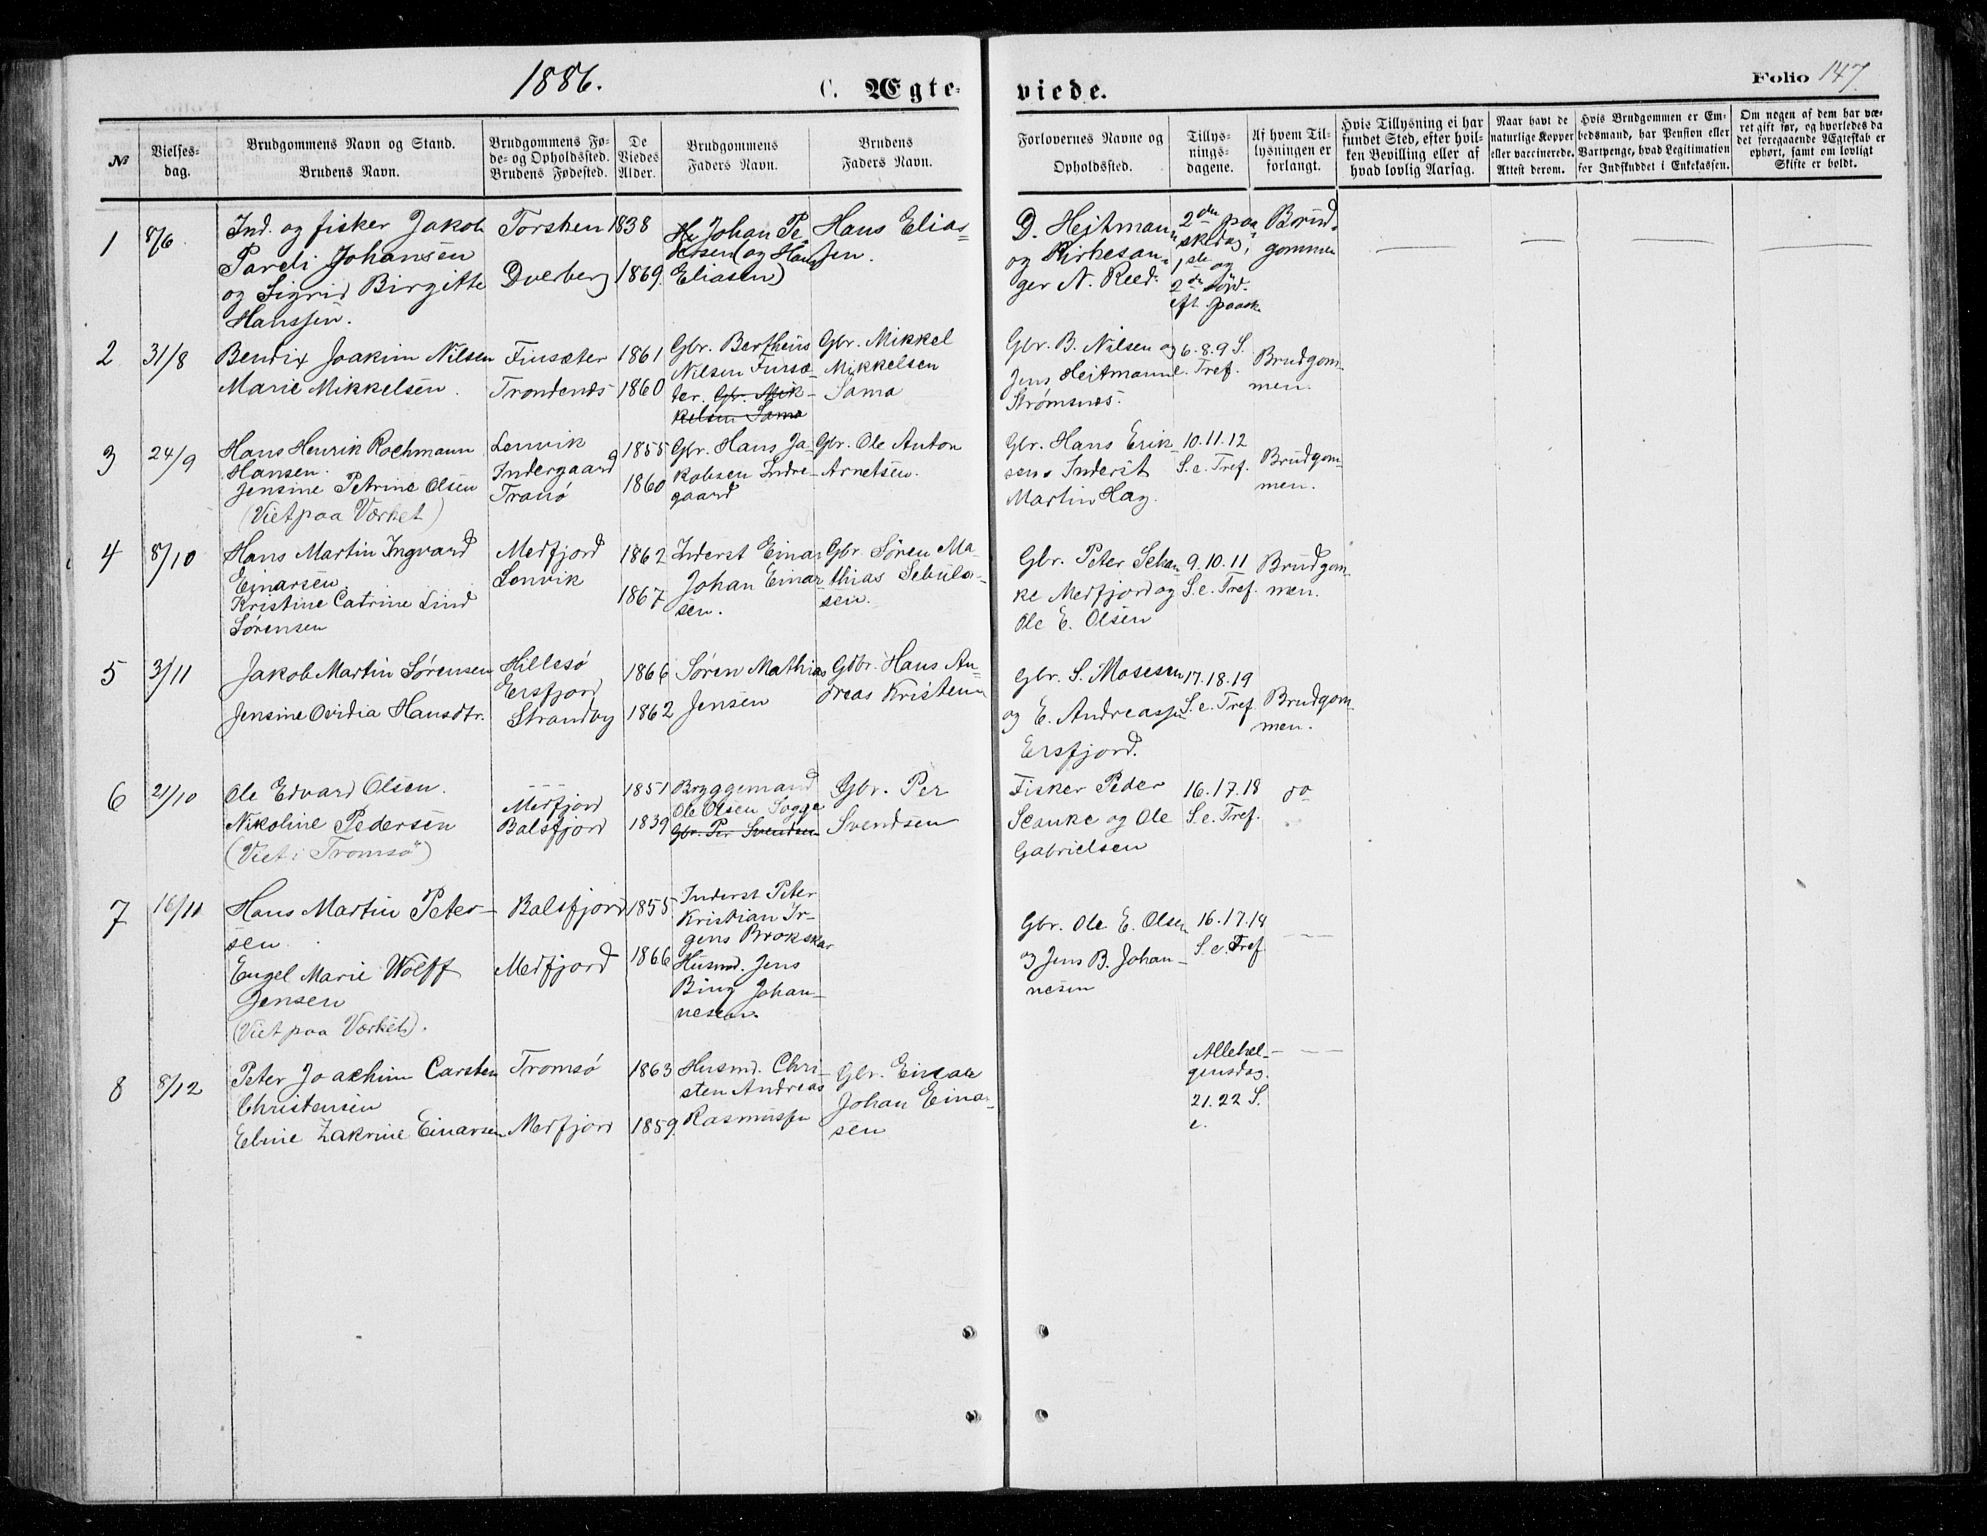 1886.
C. Ægte-
viede.
Folio 147
№
Vielses-
dag.
Brudgommens Navn og Stand.
Brudens Navn.
Brudgommens Fø-
de- og Opholdssted.
Brudens Fødested.
De
Viedes
Alder.
Brudgommens
Faders Navn.
Brudens
Faders Navn.
Forlovernes Navne og
Opholdssted.
Tillys-
nings-
dagene.
Af hvem Til-
lysningen er
forlangt.
Hvis Tillysning ei har
fundet Sted, efter hvil-
ken Bevilling eller af
hvad lovlig Aarsag.
Naar havt de
naturlige Kopper
eller vaccinerede.
Attest derom.
Hvis Brudgommen er Em-
bedsmand, har Pension eller
Vartpenge, hvad Legitimation
for Indskuddet i Enkekassen.
Om nogen af dem har væ-
ret gift før, og hvorledes da
det foregaaende Ægteskab er
ophørt, samt om lovligt
Skifte er holdt.
1
8/6.
Ind. og fisker Jakob
Pareli Johansen
og Sigrid Birgitte
Hanssen.
Torsken
Dverberg
1838
1869.
Johan Pe-
dersen (og Hans
Eliasen)
Hans Elias-
sen.
D. Hejtmann
og Kirkesan-
ger N. Reed.
2den paa
skedag,
1ste og
2den Sønd.
eft. paaske
Brud-
gommen
2
31/8
Bendix Joakim Nilsen
Marie Mikkelsen.
Finsæter
Trondenæs
1861
1860
Gbr. Bertheus
Nilsen Fursæ-
ter. Gbr. Mik-
kelsen Sama
Gbr. Mikkel
Mikkelsen
Sama
Gbr. B. Nilsen og
Jens Hejtmann
Strømsnes.
6.8.9 S.
e. Tref.
Brudgom-
men.
3
24/9
Hans Henrik Rochmann
Hansen.
Jensine Petrine Olsen
(Viet paa Værket)
Lenvik
Indergaard
Tranø
1855
1860
Gbr. Hans Ja-
kobsen Indre-
gaard
Gbr. Ole Anton
Arnetsen.
Gbr. Hans Erik-
sen Inderst
Martin Hag.
10.11.12
S. e. Tref.
Brudgom-
men.
4
8/10
Hans Martin Ingvard
Einarsen
Kristine Catrine Lind
Sørensen
Medfjord
Lenvik
1862
1867
Inderst Einar
Johan Einar-
sen.
Gbr. Søren Ma-
thias Sebula-
sen.
Gbr. Peter Schan-
ke Medfjord og
Ole E. Olsen
9.10.11
S. e. Tref.
Brudgom-
men.
5
3/11
Jakob Martin Sørensen
Jensine Ovidia Hansdtr.
Hillesø
Ersfjord
Strandby
1866
1862
Søren Mathias
Jensen
Gdbr. Hans An-
dreas Kristensen
Gbr. S. Mosesen
og E. Andreassen
Ersfjord.
17.18.19
S. e. Tref
Brudgom-
men.
6
21/10
Ole Edvard Olsen.
Nikoline Pedersen
(Viet i Tromsø)
Medfjord
Balsfjord
1851
1839
Bryggemand
Ole Olsen Sogge
Gbr. Per Svendsen
Gbr. Per
Svendsen
Fisker Peder
Scanke og Ole
Gabrielsen
16.17.18
S. e. Tref.
do
7
16/11
Hans Martin Peter-
sen.
Engel Marie Wolff
Jensen
(Viet paa Værket).
Balsfjord
Medfjord
1855
1866
Inderst Peter
Kristian Ir-
gens Brokskar
Husmd. Jens
Bing Johan-
nesen
Gbr. Ole E. Olsen
og Jens B. Johan-
nesen
16.17.18
S. e. Tref
8
8/12
Peter Joachim Carsten
Christensen
Eline Zakrine Einarsen
Tromsø
Medfjord
1863
1859.
Husmd. Chri-
sten Andreas
Rasmussen
Gbr. Einar
Johan Einar-
sen
Allehel-
gensdag.
21.22 S.
e.